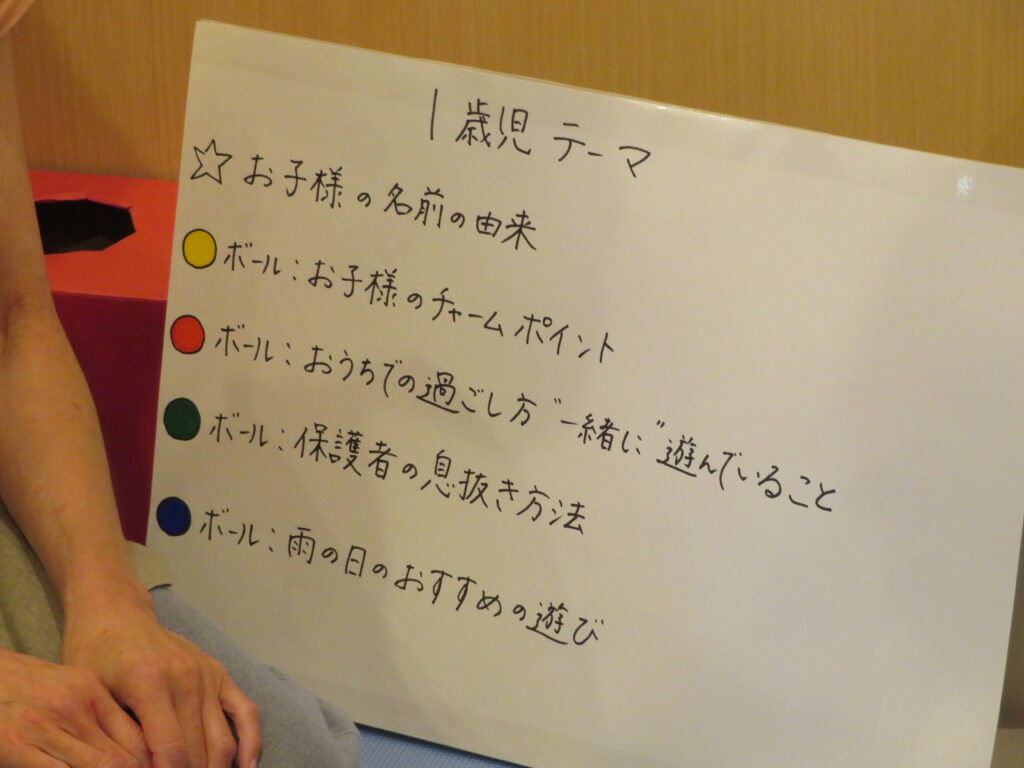 1歳児 テーマ
☆ お子様の名前の由来
ボール：お子様のチャームポイント
ボール：おうちでの過ごし方 "一緒に" 遊んでいること
ボール：保護者の息抜き方法
ボール：雨の日のおすすめの遊び